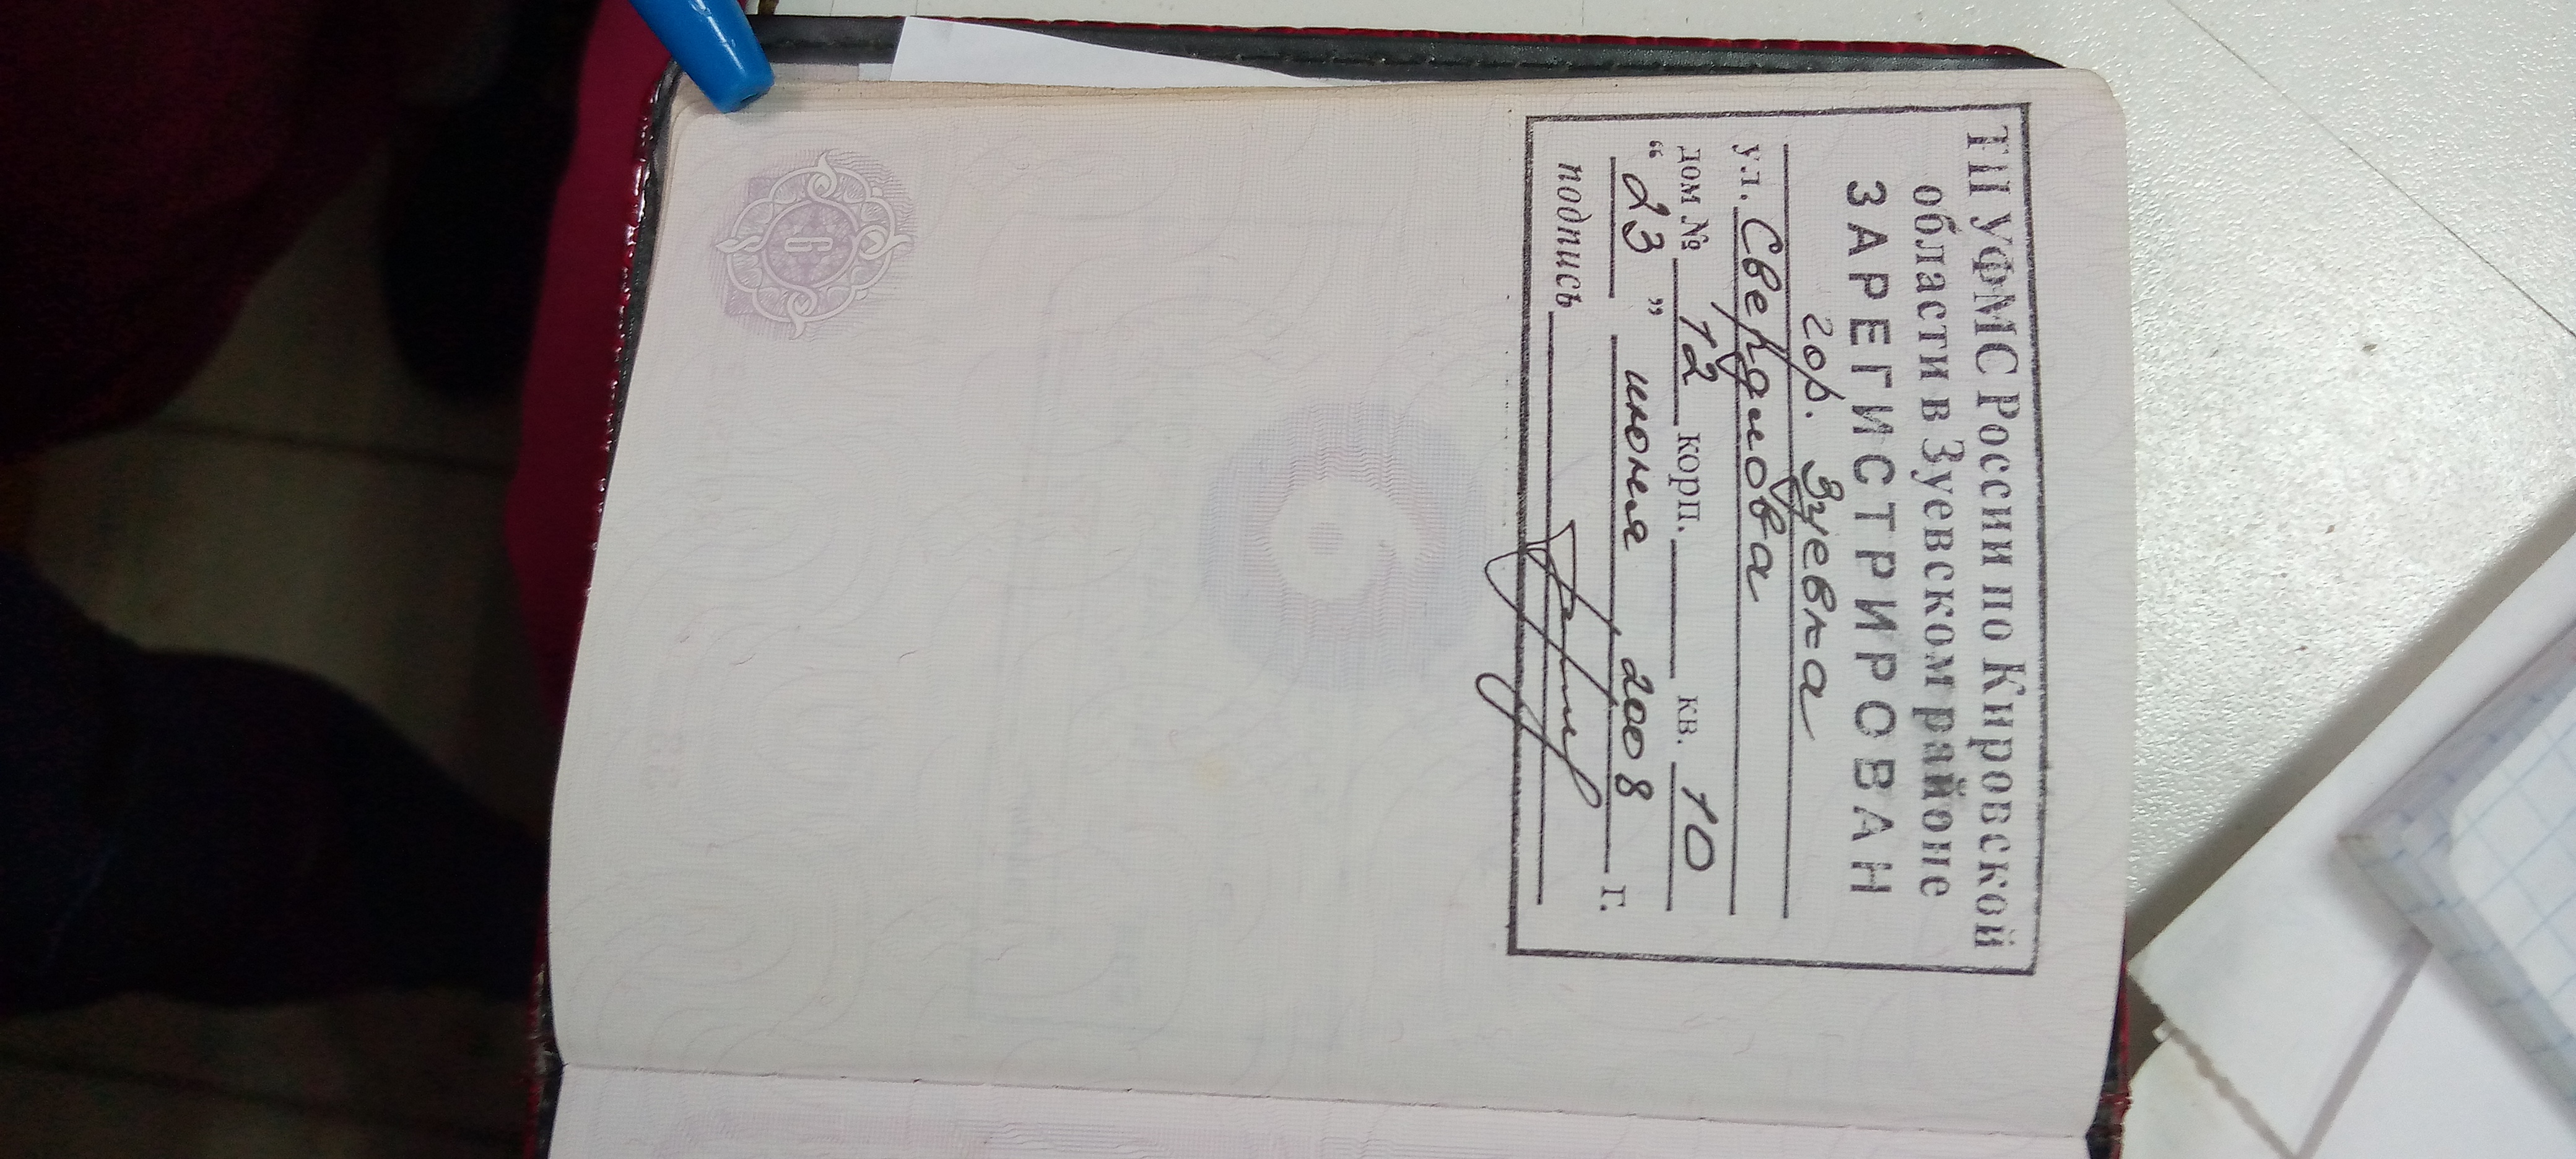 ТП УФМС России по Кировской
области в Зуевском районе
ЗАРЕГИСТРИРОВАН
гор. Зуевка
ул. Свердлова
дом № 12 корп. кв. 10
“ 23 ” июня 2008 г.
подпись
6